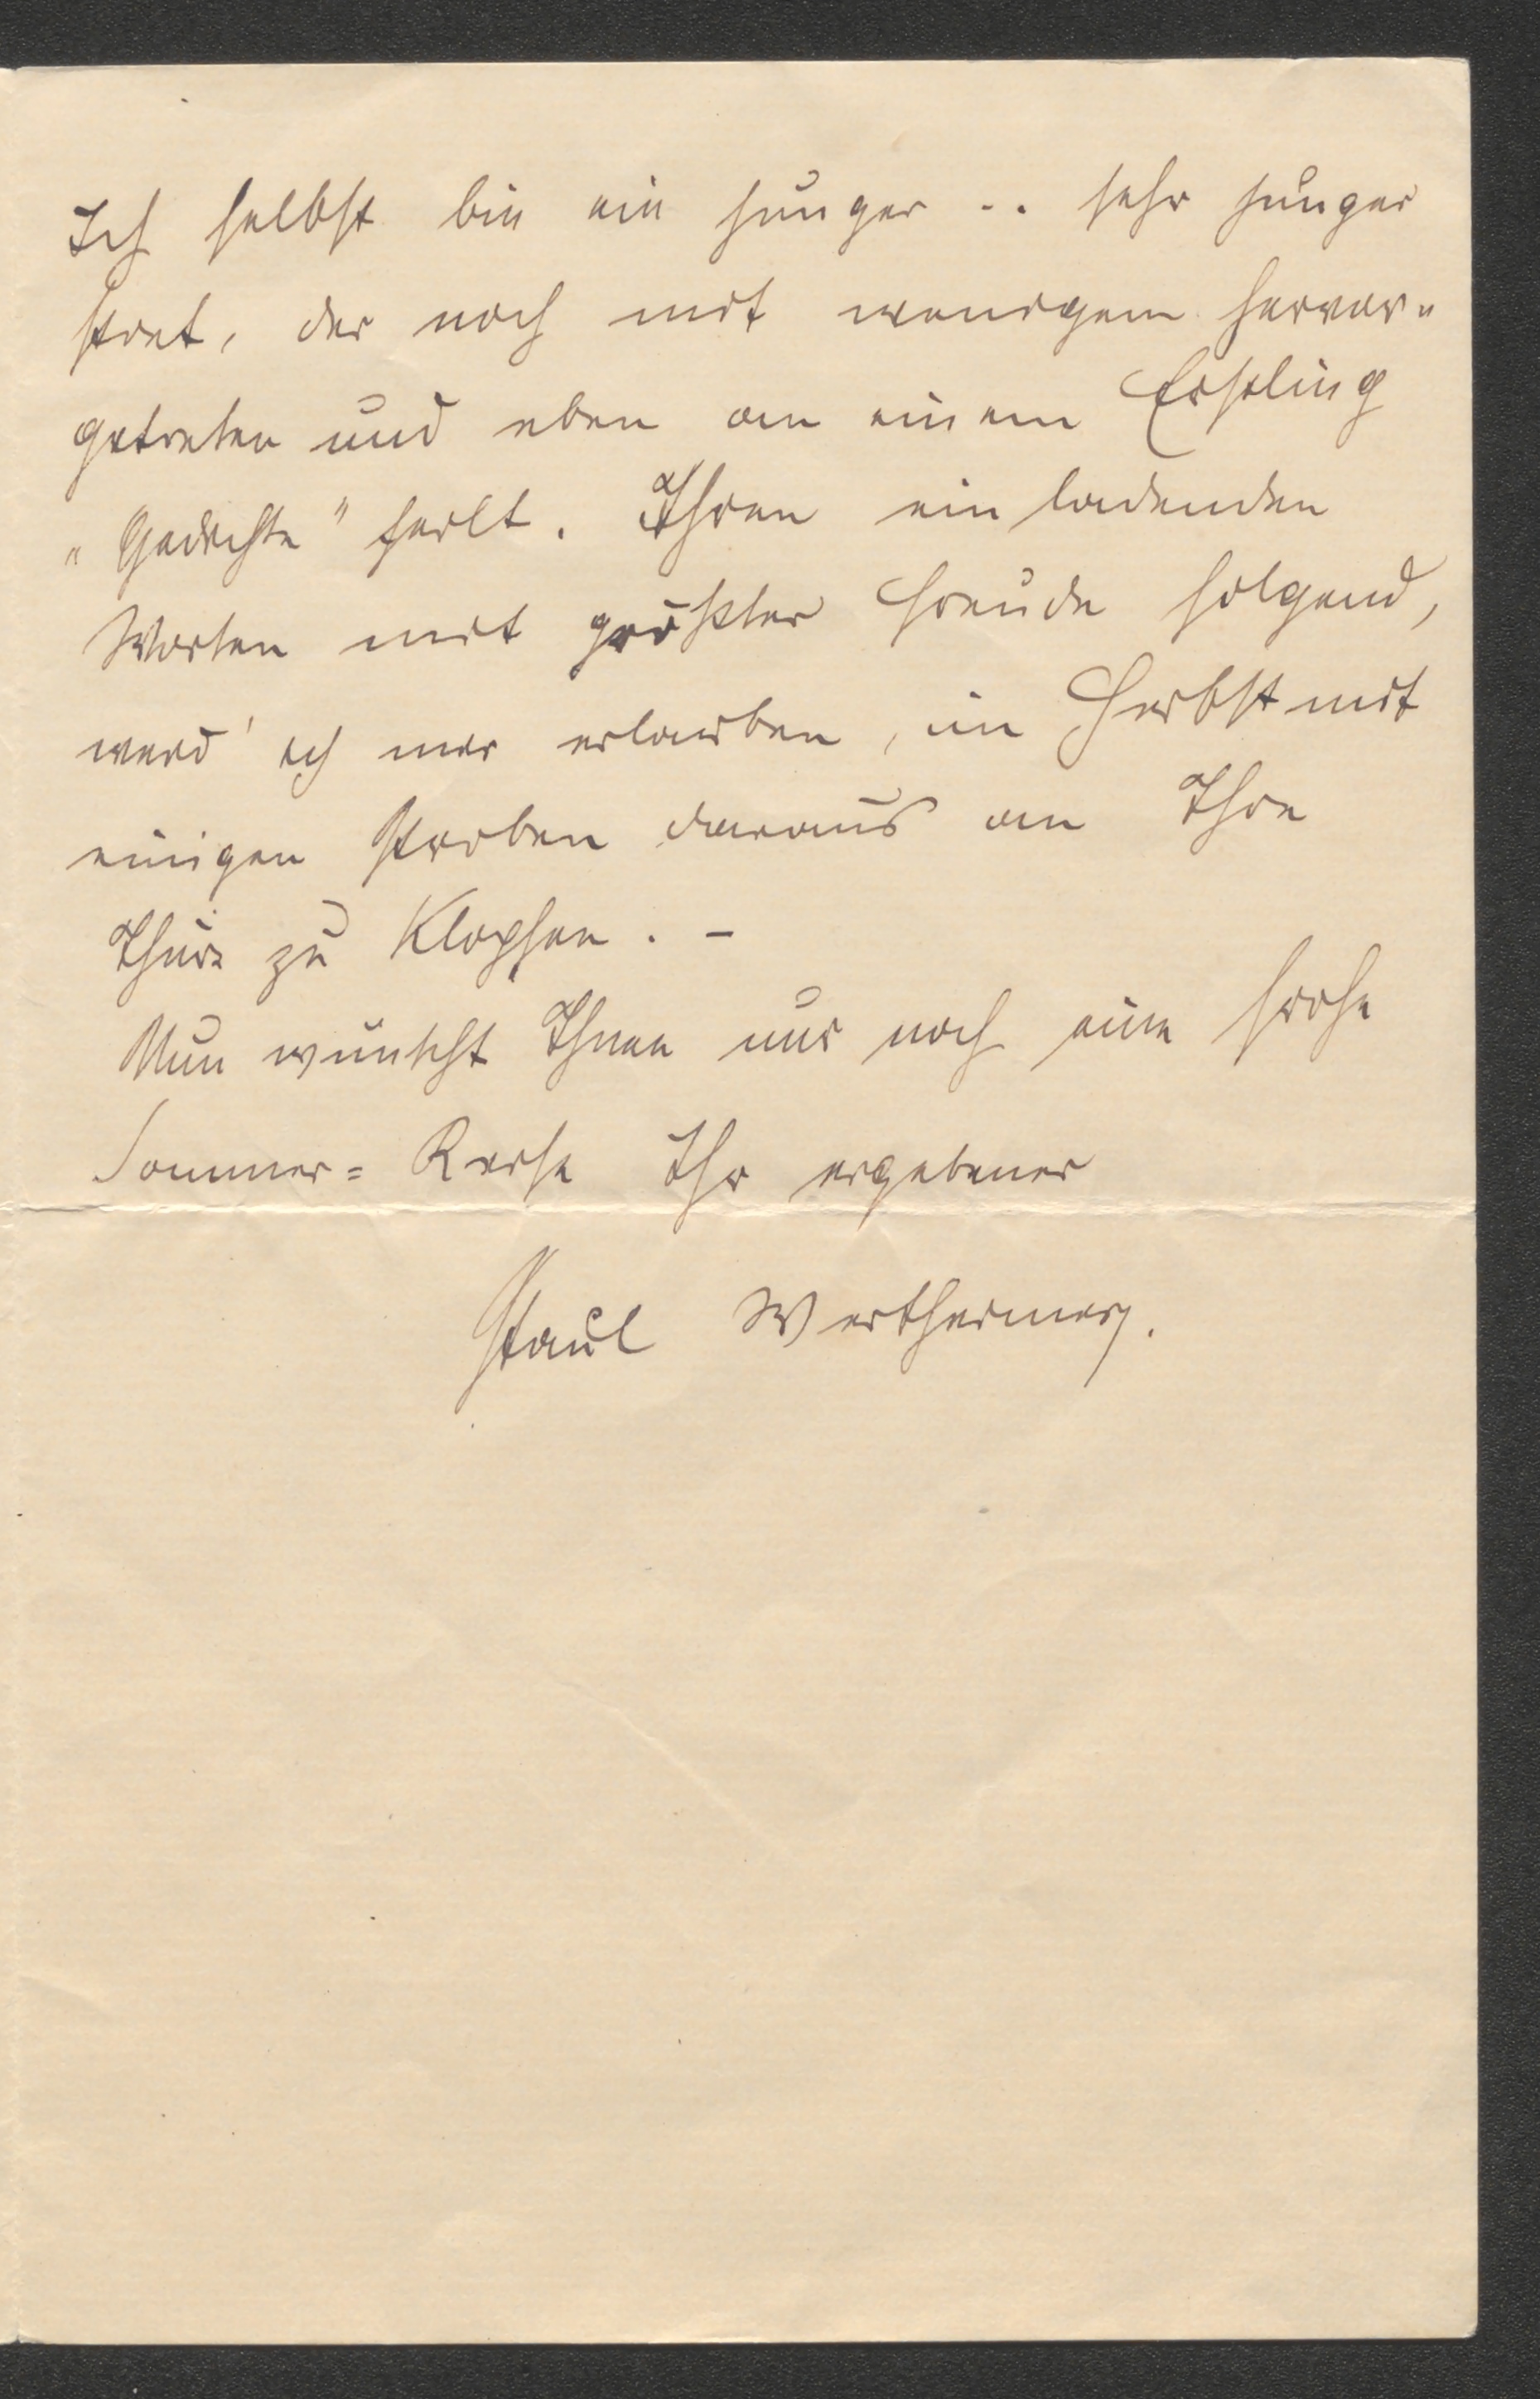 Ich selbst bin ein junger .. sehr junger
Poet, der noch mit wenigem hervor-
getreten und eben an einem Erstling
„Gedichte" feilt. Ihren einladenden
Worten mit größter Freude folgend,
werd' ich mir erlauben, im Herbst mit
einigen Proben daraus an Ihre
Thüre zu klopfen. –
Nun wünscht Ihnen nur noch eine frohe
Sommer-Reise Ihr ergebener
Paul Wertheimer.